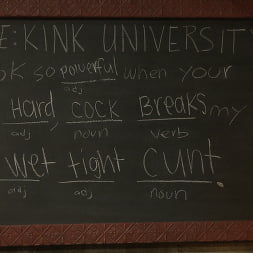 E: KINK UNIVERSIT
OK SO powerful when your
adj
Hard, COCK BReaks my
adj noun verb
wet tight CUNT.
adj adj noun